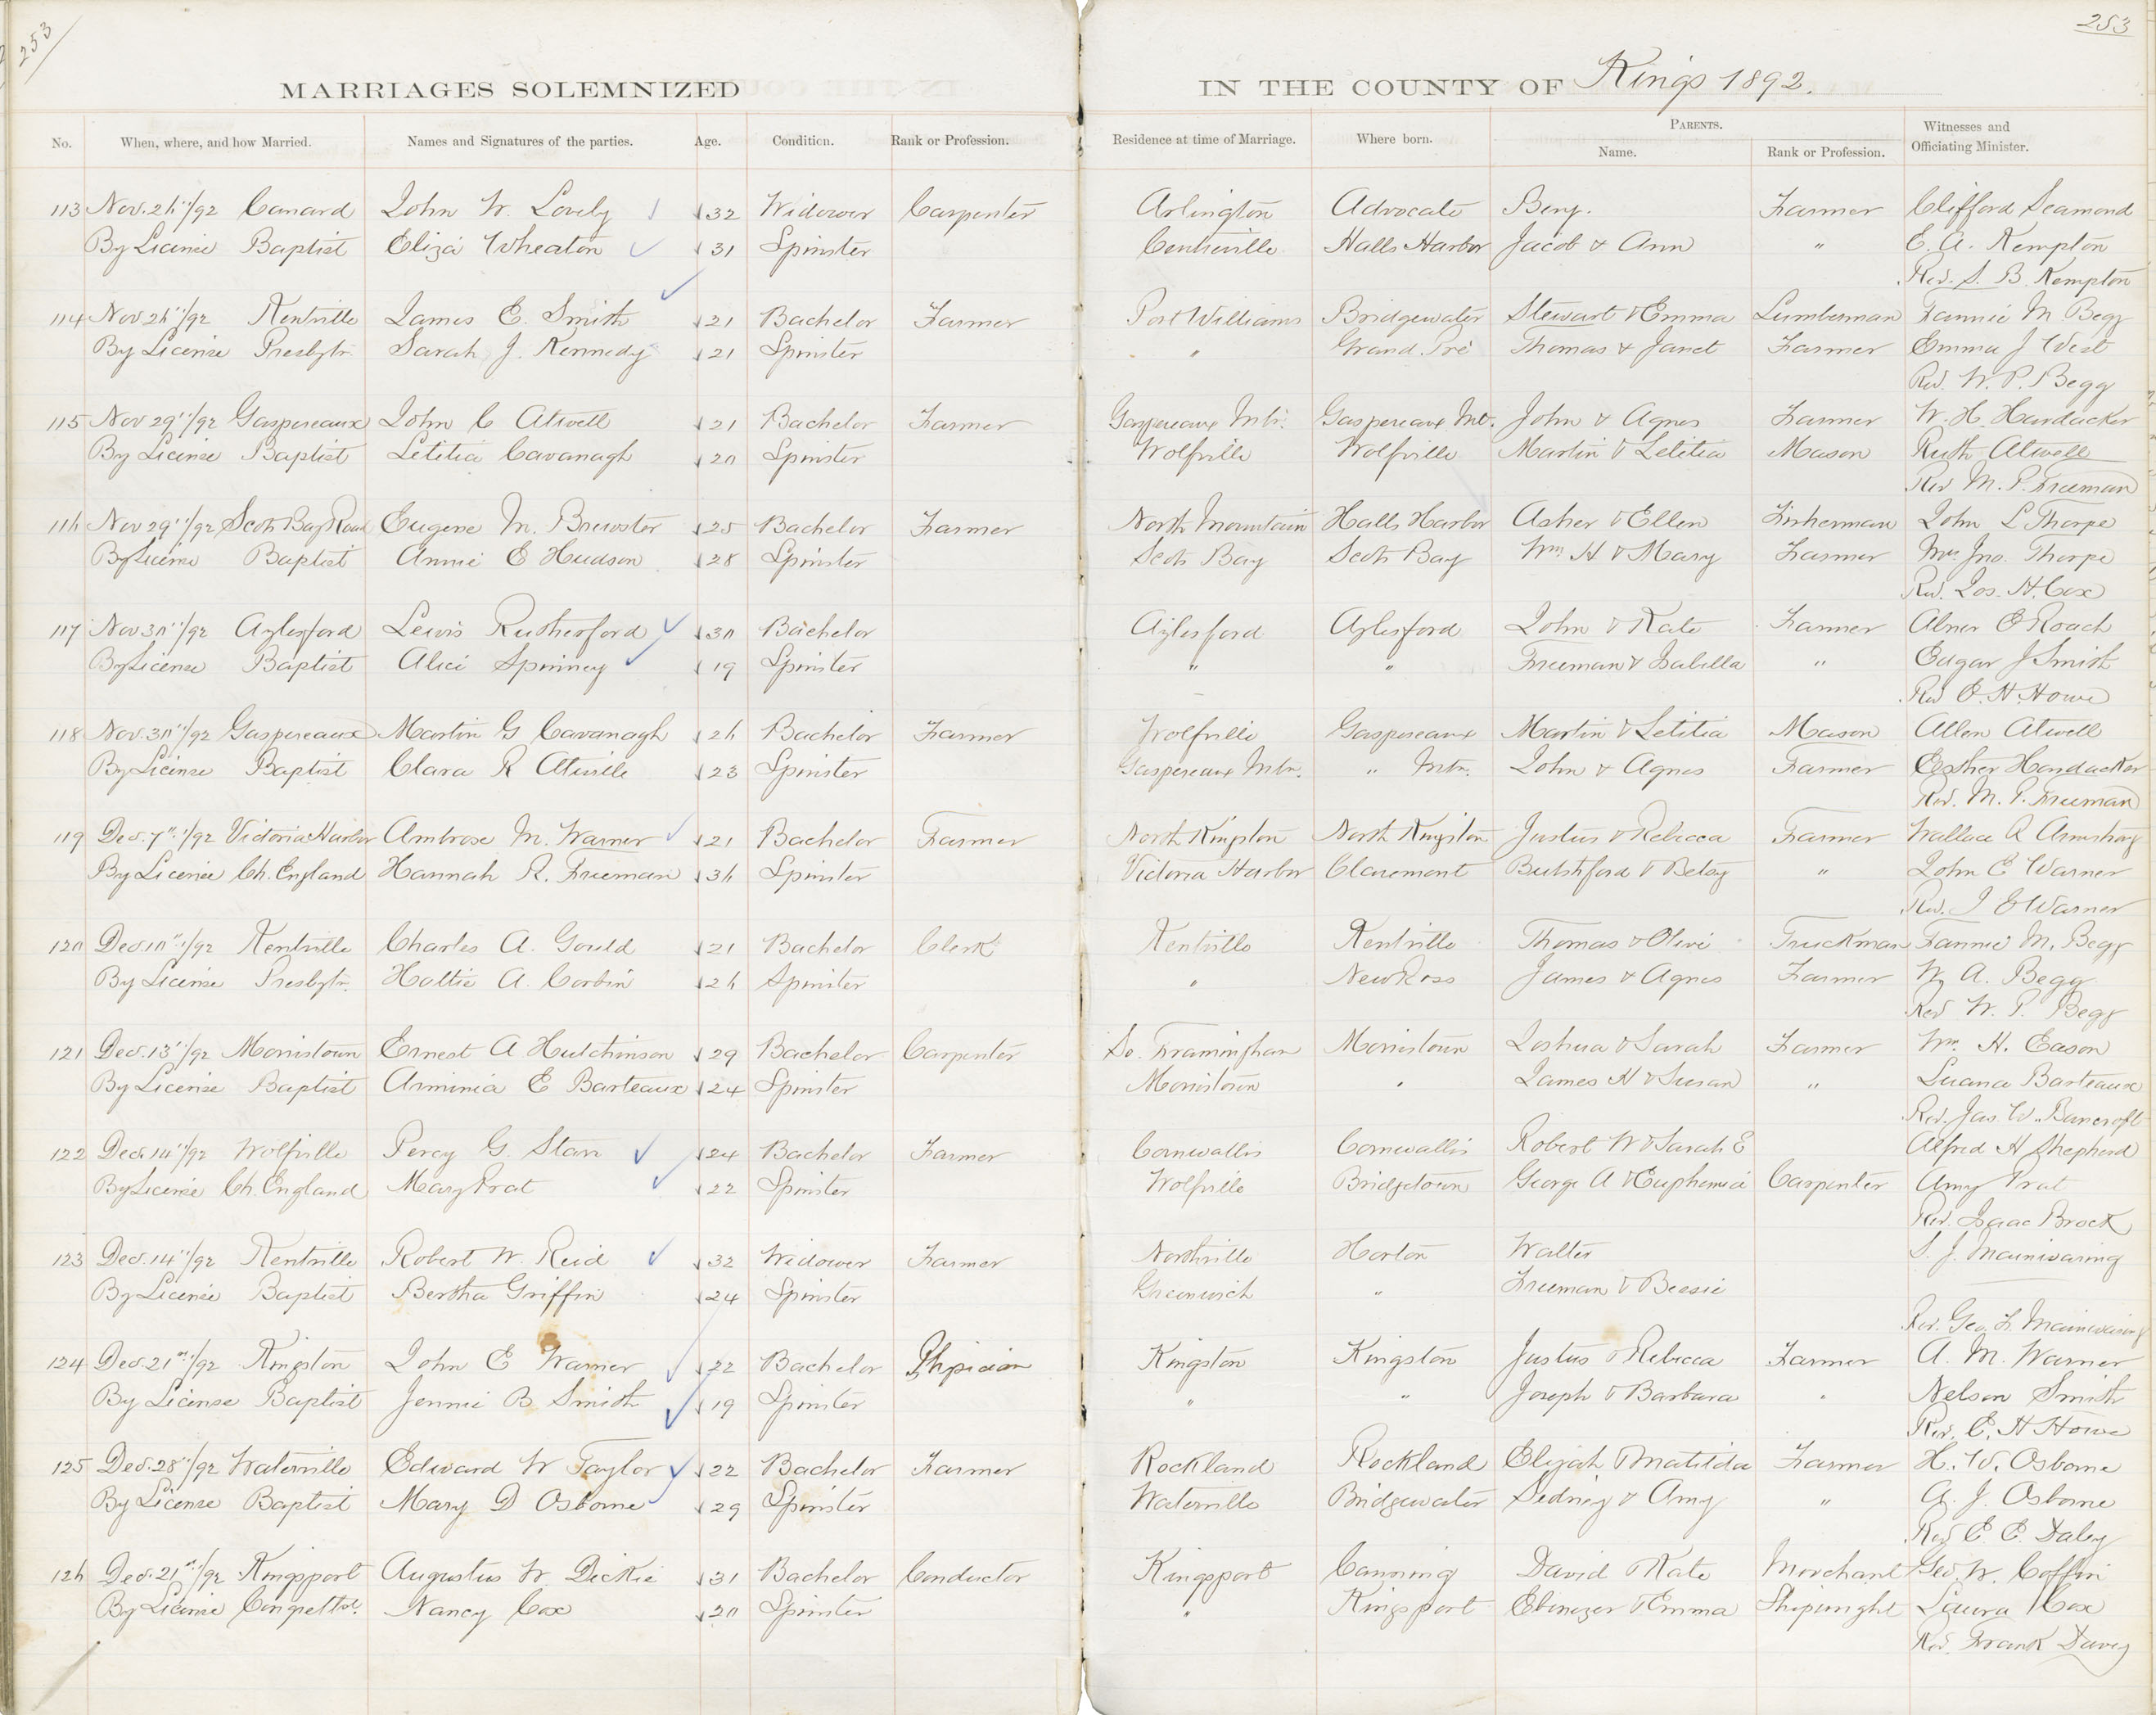 253
253
MARRIAGES SOLEMNIZED IN THE COUNTY OF Kings 1892.
No. When, where, and how Married. Names and Signatures of the parties. Age. Condition. Rank or Profession. Residence at time of Marriage. Where born. PARENTS. Name. Rank or Profession. Witnesses and Officiating Minister.
113 Nov. 26"/92 Canard John W. Lovely 32 Widower Carpenter Arlington Advocate Benj. Farmer Clifford Seamond
By License Baptist Eliza Wheaton 31 Spinster Centreville Halls Harbor Jacob & Ann " E. A. Kempton
Rev. S. B. Kempton
114 Nov 26"/92 Kentville James E. Smith 21 Bachelor Farmer Port Williams Bridgewater Stewart & Emma Lumberman Fannie M Begg
By License Presbytr. Sarah J. Kennedy 21 Spinster " Grand Pré Thomas & Janet Farmer Emma J West
Rev. W. P. Begg
115 Nov 29"/92 Gaspereaux John C Atwell 21 Bachelor Farmer Gaspereaux Mtn. Gaspereaux Mt. John & Agnes Farmer W. H. Hardacker
By License Baptist Letitia Cavanagh 20 Spinster Wolfville Wolfville Martin & Letitia Mason Ruth Atwell
Rev M. P. Freeman
116 Nov 29"/92 Scots Bay Road Eugene M. Brewster 25 Bachelor Farmer North Mountain Halls Harbor Asher & Ellen Fisherman John L Thorpe
By License Baptist Annie E Hudson 28 Spinster Scots Bay Scots Bay Wm H & Mary Farmer Mrs Jno. Thorpe
Rev. Jos. H. Cox
117 Nov 30"/92 Aylesford Lewis Rutherford 30 Bachelor Aylesford Aylesford John & Kate Farmer Abner E Roach
By License Baptist Alice Spinney 19 Spinster " " Freeman & Isabella " Edgar J Smith
Rev E. H. Howe
118 Nov. 30"/92 Gaspereaux Martin G Cavanagh 26 Bachelor Farmer Wolfville Gaspereaux Martin & Letitia Mason Allen Atwell
By License Baptist Clara R Atwille 23 Spinster Gaspereaux Mtn. " Mtn. John & Agnes Farmer Esther Hardacker
Rev. M. P. Freeman
119 Dec. 7"/92 Victoria Harbor Ambrose M. Warner 21 Bachelor Farmer North Kingston North Kingston Justus & Rebecca Farmer Wallace R Armstrong
By License Ch. England Hannah R. Freeman 36 Spinster Victoria Harbor Claremont & Betsy " John E Warner
Rev. J E Warner
120 Dec. 10"/92 Kentville Charles A. Gould 21 Bachelor Clerk Kentville Kentville Thomas & Olive Truckman Fannie M. Begg
By License Presbytr. Hattie A. Corbin 26 Spinster " New Ross James & Agnes Farmer W. A. Begg
Rev W. P. Begg
121 Dec. 13"/92 Morristown Ernest A Hutchinson 29 Bachelor Carpenter So. Framingham Morristown Joshua & Sarah Farmer Wm. H. Eason
By License Baptist Arminia E Barteaux 24 Spinster Morristown " James H & Susan " Luana Barteaux
Rev. Jas. W. Bancroft
122 Dec. 14"/92 Wolfville Percy G. Starr 24 Bachelor Farmer Cornwallis Cornwallis Robert W & Sarah E Alfred H Shepherd
By License Ch. England Mary Prat 22 Spinster Wolfville Bridgetown George A & Euphemia Carpenter Amy Prat
Rev. Isaac Brock
123 Dec. 14"/92 Kentville Robert W. Reid 32 Widower Farmer Northville Horton Walter S. J. Mainwaring
By License Baptist Bertha Griffin 24 Spinster Greenwich " Freeman & Bessie
Rev. Geo. L. Mainwaring
124 Dec. 21st/92 Kingston John E Warner 22 Bachelor Physician Kingston Kingston Justus & Rebecca Farmer A. M. Warner
By License Baptist Jennie B Smith 19 Spinster " " Joseph & Barbara " Nelson Smith
Rev. E. H Howe
125 Dec. 28"/92 Waterville Edward W Taylor 22 Bachelor Farmer Rockland Rockland Elijah & Matilda Farmer H. W. Osborne
By License Baptist Mary D Osborne 29 Spinster Waterville Bridgewater Sidney & Amy " A. J. Osborne
Rev E. E. Daley
126 Dec. 21st/92 Kingsport Augustus W. Dickie 31 Bachelor Conductor Kingsport Canning David & Kate Merchant Geo. W. Coffin
By License Congettal. Nancy Cox 20 Spinster " Kingsport Ebenezer & Emma Shipwright Laura Cox
Rev. Frank Davey